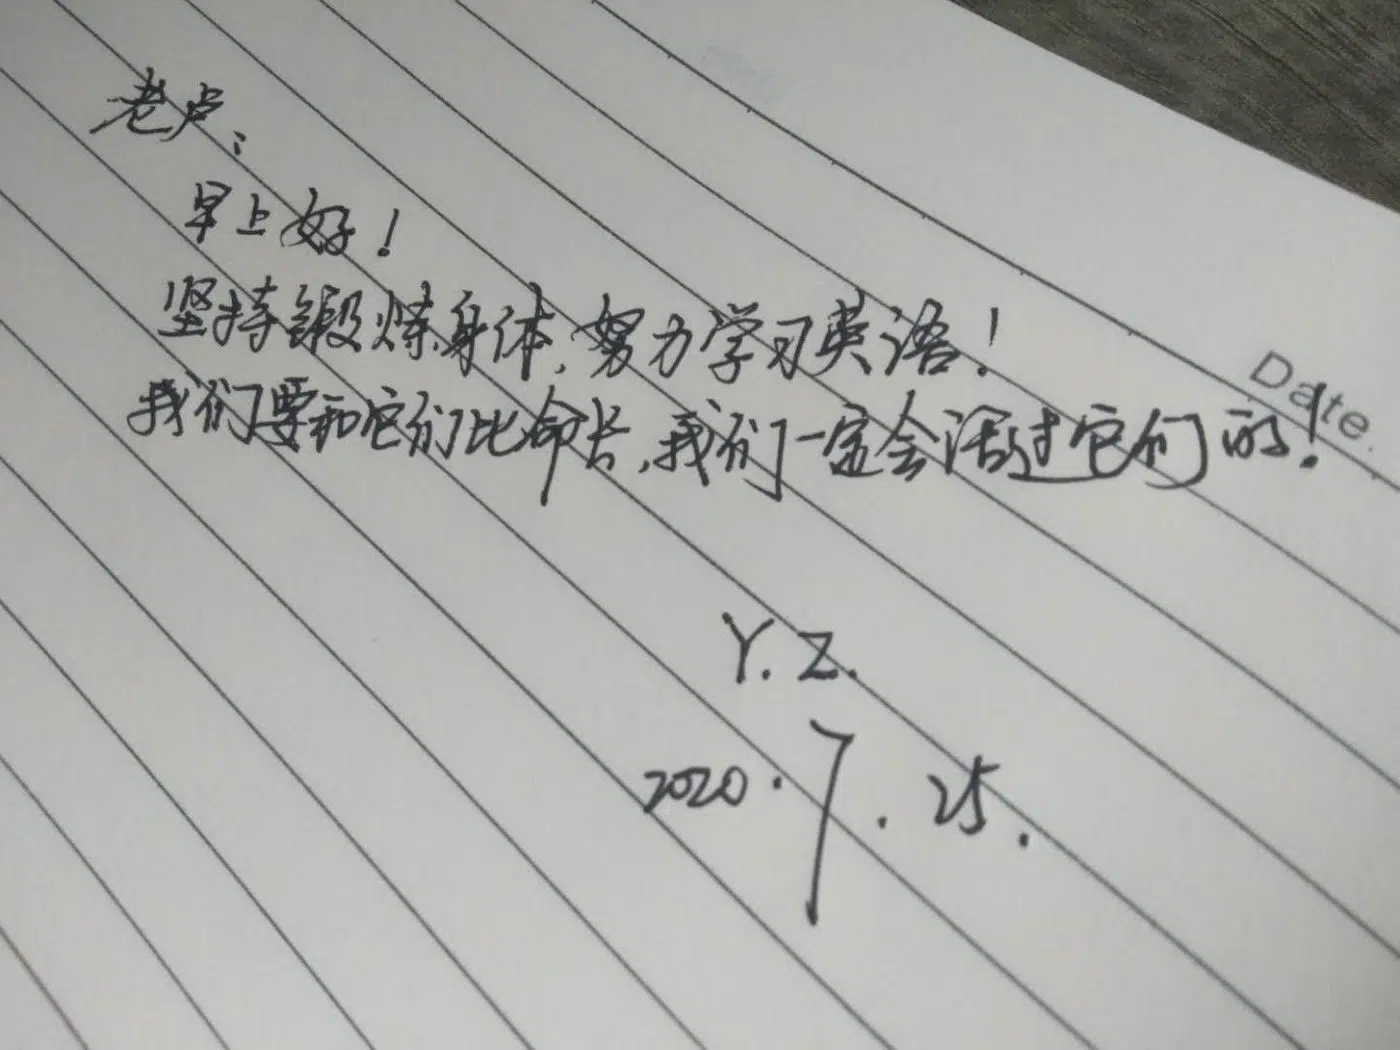 老卢：
早上好！
坚持锻炼身体，努力学习英语！
我们要和它们比命长，我们一定会活过它们的！
Date.
Y. Z.
2020.7.25.